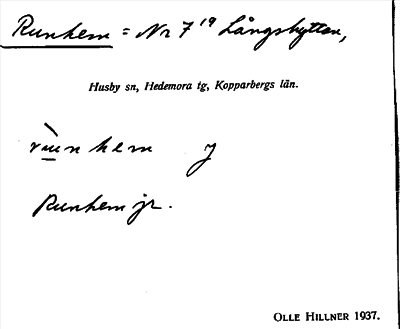 Runhem = Nr 7¹⁹ Långshyttan,
Husby sn, Hedemora tg, Kopparbergs län.
rùnhem J
Runhem jr.
OLLE HILLNER 1937.